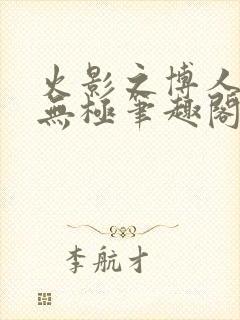 火影之博人
無極筆趣閣
李航才